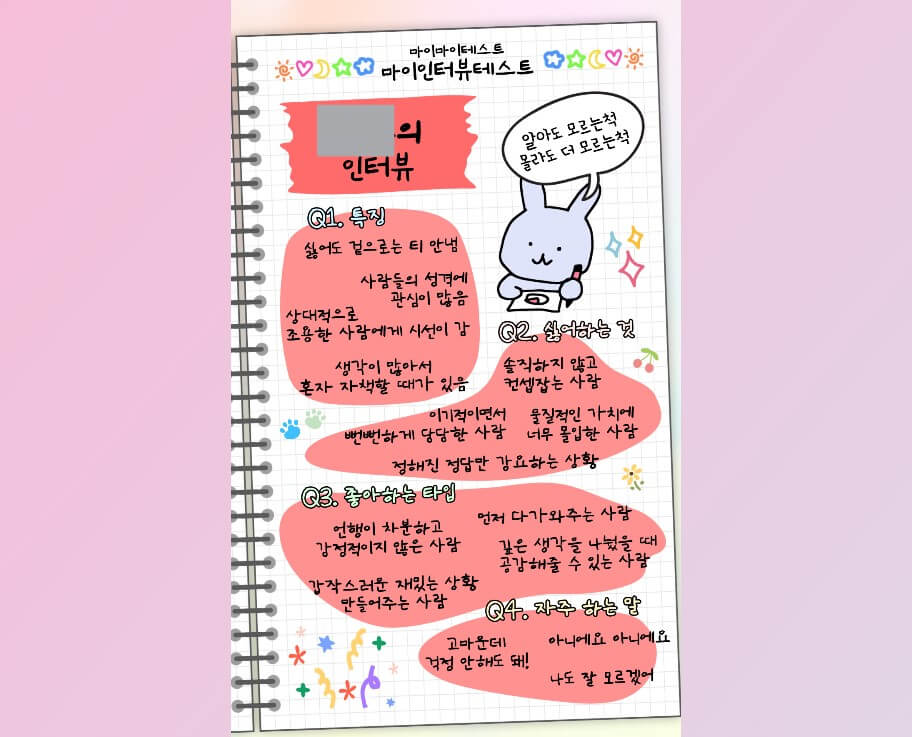 마이마이테스트
마이인터뷰테스트
의
인터뷰
알아도 모르는척
몰라도 더 모르는척
Q1. 특징
싫어도 겉으로는 티 안냄
사람들의 성격에
관심이 많음
상대적으로
조용한 사람에게 시선이 감
생각이 많아서
혼자 자책할 때가 있음
Q2. 싫어하는 것
솔직하지 않고
컨셉잡는 사람
이기적이면서
뻔뻔하게 당당한 사람
물질적인 가치에
너무 몰입한 사람
정해진 정답만 강요하는 상황
Q3. 좋아하는 타입
언행이 차분하고
감정적이지 않은 사람
먼저 다가와주는 사람
깊은 생각을 나눴을 때
공감해줄 수 있는 사람
갑작스러운 재밌는 상황
만들어주는 사람
Q4. 자주 하는 말
고마운데
걱정 안해도 돼!
아니에요 아니에요
나도 잘 모르겠어